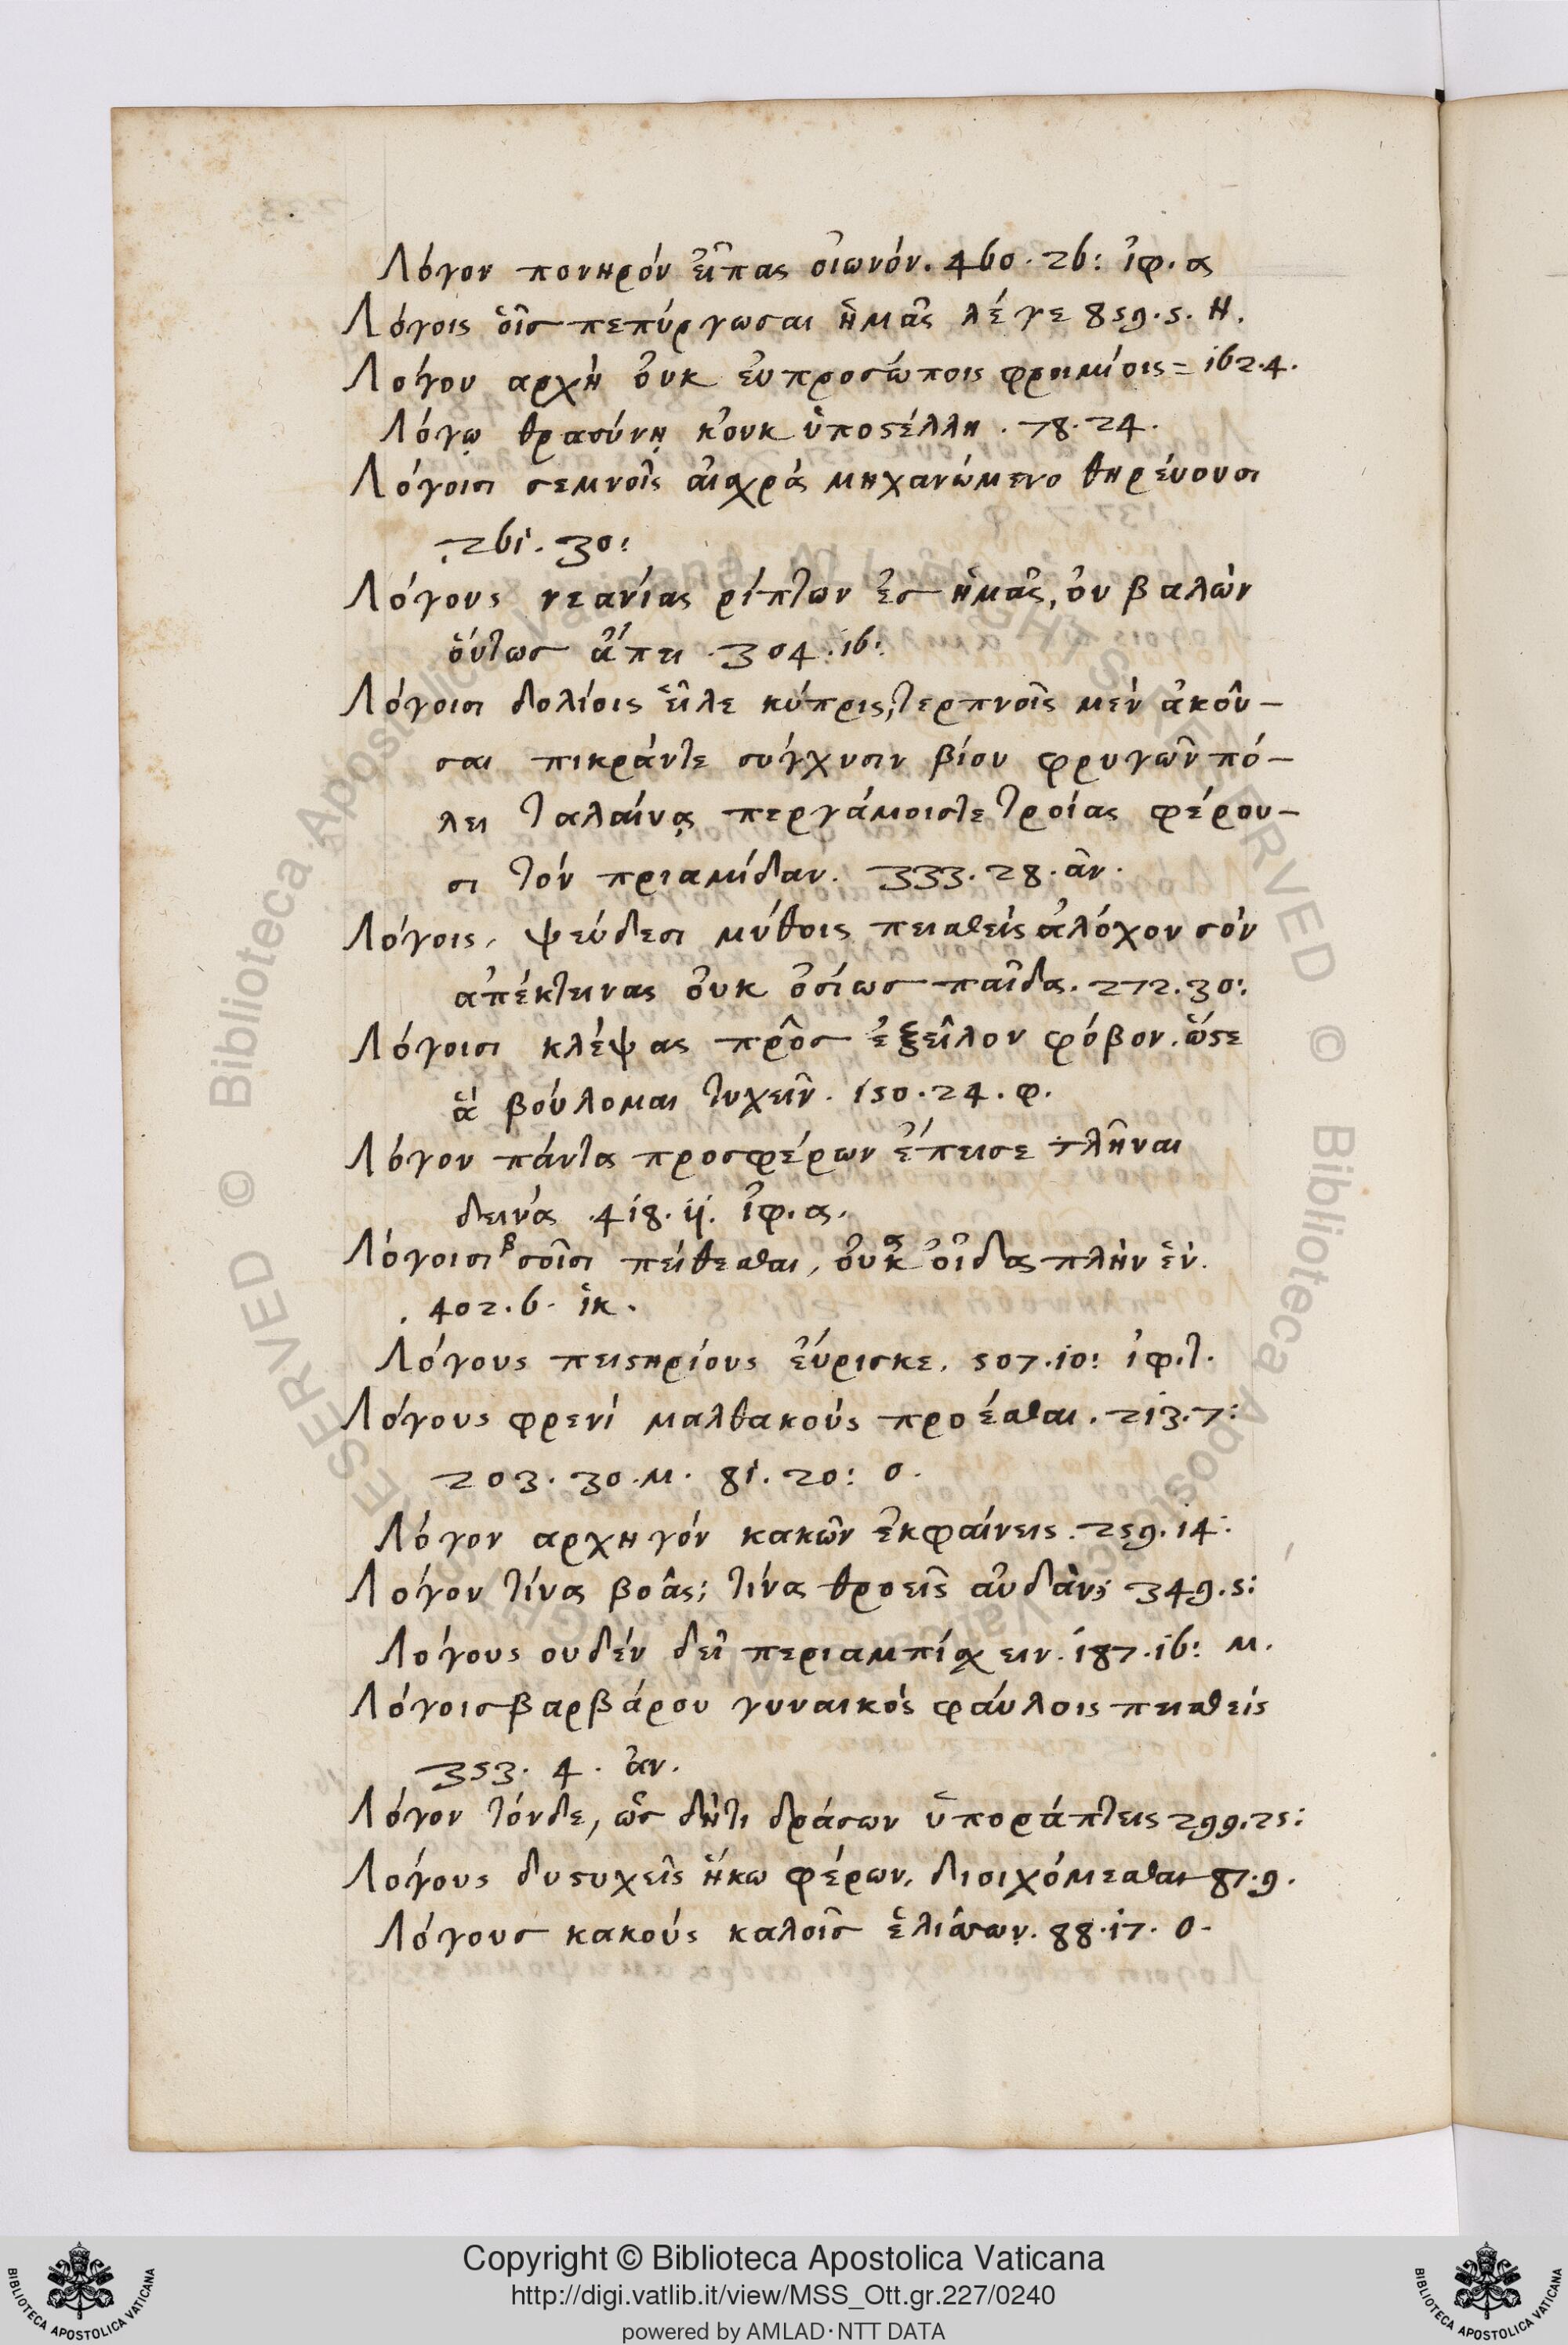 Λόγον πονηρόν εἶπας οἰωνόν. 460. 26: ἰφ. α
Λόγοις οἷς πεπύργωσαι ἡμᾶς λέγε 859. 5. Η.
Λόγου αρχὴ οὐκ εὐπροσώποις φροιμίοις = 162. 4.
Λόγῳ θρασύνῃ κ'ουκ ὑποστέλλη. 78. 24.
Λόγοισι σεμνοῖς αἰσχρά μηχανώμενο θηρεύουσι
261. 30:
Λόγους νεανίας ρίπτων ἐς ἡμᾶς, οὐ βαλὼν
οὕτως ἄπει. 304. 16:
Λόγοισι δολίοις εἷλε κύπρις, τερπνοῖς μέν ἀκοῦ-
σαι πικράν τε σύγχυσιν βίου φρυγῶν πό-
λει ταλαίνᾳ περγάμοις τε τροίας φέρου-
σι τόν πριαμίδαν. 333. 28. ἀν.
Λόγοις, ψεύδεσι μύθοις πεισθείς ἀλόχου σόν
απέκτεινας οὐκ ὁσίως παῖδα. 272. 30:
Λόγοισι κλέψας πρὸς ἐξεῖλον φόβον. ὥστε
ἅ βούλομαι τυχεῖν. 150. 24. φ.
Λόγον πάντα προσφέρων ἔπεισε τλῆναι
δεινά. 418. 11. ἰφ. α.
Λόγοισι β σοῖσι πείθεσθαι, οὐκ α οἶδα πλὴν ἕν.
. 402. 6. ἱκ.
Λόγους πειστηρίους εὕρισκε. 507. 10: ἰφ. τ.
Λόγους φρενί μαλθακούς προέσθαι. 213. 7:
203. 30. μ. 81. 20: ο.
Λόγον αρχηγόν κακῶν ἐκφαίνεις. 259. 14:
Λόγον τίνα βοᾷς; τίνα θροεῖς αὐδάν; 349. 5:
Λόγους ουδέν δεῖ περιαμπίσχειν. 187. 16: μ.
Λόγοις βαρβάρου γυναικός φαύλοις πεισθείς
353. 4. ἀν.
Λόγον τόνδε, ὡς δή τι δράσων ὑποράπτεις 299. 25:
Λόγους δυστυχεῖς ἥκω φέρων, διοιχόμεσθα 87. 9.
Λόγους κακούς καλοῖς ἑλίσσων. 88. 17. ο.
Copyright © Biblioteca Apostolica Vaticana
http://digi.vatlib.it/view/MSS_Ott.gr.227/0240
powered by AMLAD·NTT DATA